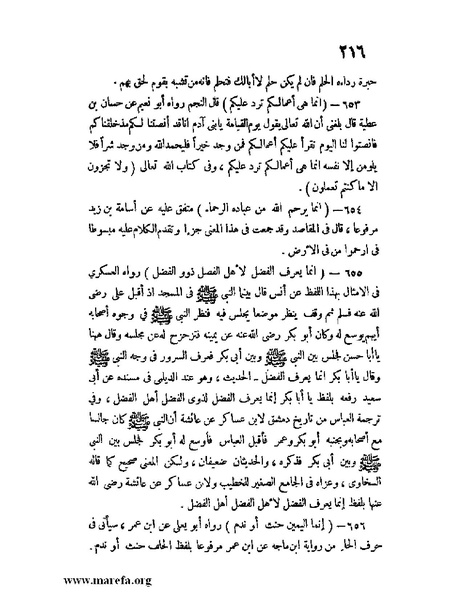 ٢١٦
حبرة رداءه الحلم فان لم يكن حلم لاأبالك فتحلم فانه من تشبه بقوم لحق بهم .
٦٥٣ — ( انما هى أعمالكم ترد عليكم ) قال النجم رواه أبو نعيم عن حسان بن
عطية قال بلغنى أن الله تعالى يقول يوم القيامة يابنى آدم اناقد أنصتنا لكم مذ خلقناكم
فانصتوا لنا اليوم نقرأ عليكم أعمالكم فمن وجد خيراً فليحمد الله ومن وجد شراً فلا
يلومن إلا نفسه انما هى أعمالكم ترد عليكم ، وفى كتاب الله تعالى ( ولا تجزون
الا ما كنتم تعملون ) .
٦٥٤ — ( انما يرحم الله من عباده الرحماء ) متفق عليه عن أسامة بن زيد
مرفوعا ، قال فى المقاصد وقد جمعت فى هذا المعنى جزءا وتقدم الكلام عليه مبسوطا
فى ارحموا من فى الأرض .
٦٥٥ — ( انما يعرف الفضل لأهل الفضل ذوو الفضل ) رواه العسكري
فى الامثال بهذا اللفظ عن أنس قال بينما النبي ﷺ فى المسجد اذ أقبل على رضى
الله عنه فسلم ثم وقف ينظر موضعا يجلس فيه فنظر النبي ﷺ فى وجوه أصحابه
أيهم يوسع له وكان أبو بكر رضى الله عنه عن يمينه فتزحزح له عن مجلسه وقال ههنا
ياأبا حسن لجلس بين النبي ﷺ وبين أبى بكر فعرف السرور فى وجه النبي ﷺ
وقال ياأبا بكر انما يعرف الفضل ـ الحديث ، وهو عند الديلمى فى مسنده عن أبى
سعيد رفعه بلفظ يا أبا بكر إنما يعرف الفضل لذوى الفضل أهل الفضل ، وفى
ترجمة العباس من تاريخ دمشق لابن عساكر عن عائشة أن النبي ﷺ كان جالسا
مع أصحابه وبجنبه أبو بكر وعمر فأقبل العباس فأوسع له أبو بكر لجلس بين النبي
ﷺ وبين أبى بكر فذكره ، والحديثان ضعيفان ، ولكن المعنى صحيح كما قاله
السخاوى ، وعزاه فى الجامع الصغير للخطيب ولابن عساكر عن عائشة رضى الله
عنها بلفظ إنما يعرف الفضل لأهل الفضل أهل الفضل .
٦٥٦ — ( إنما اليمين حنث أو ندم ) رواه أبو يعلى عن ابن عمر ، سيأتى فى
حرف الحاء من رواية ابن ماجه عن ابن عمر مرفوعا بلفظ الحلف حنث أو ندم .
www.marefa.org